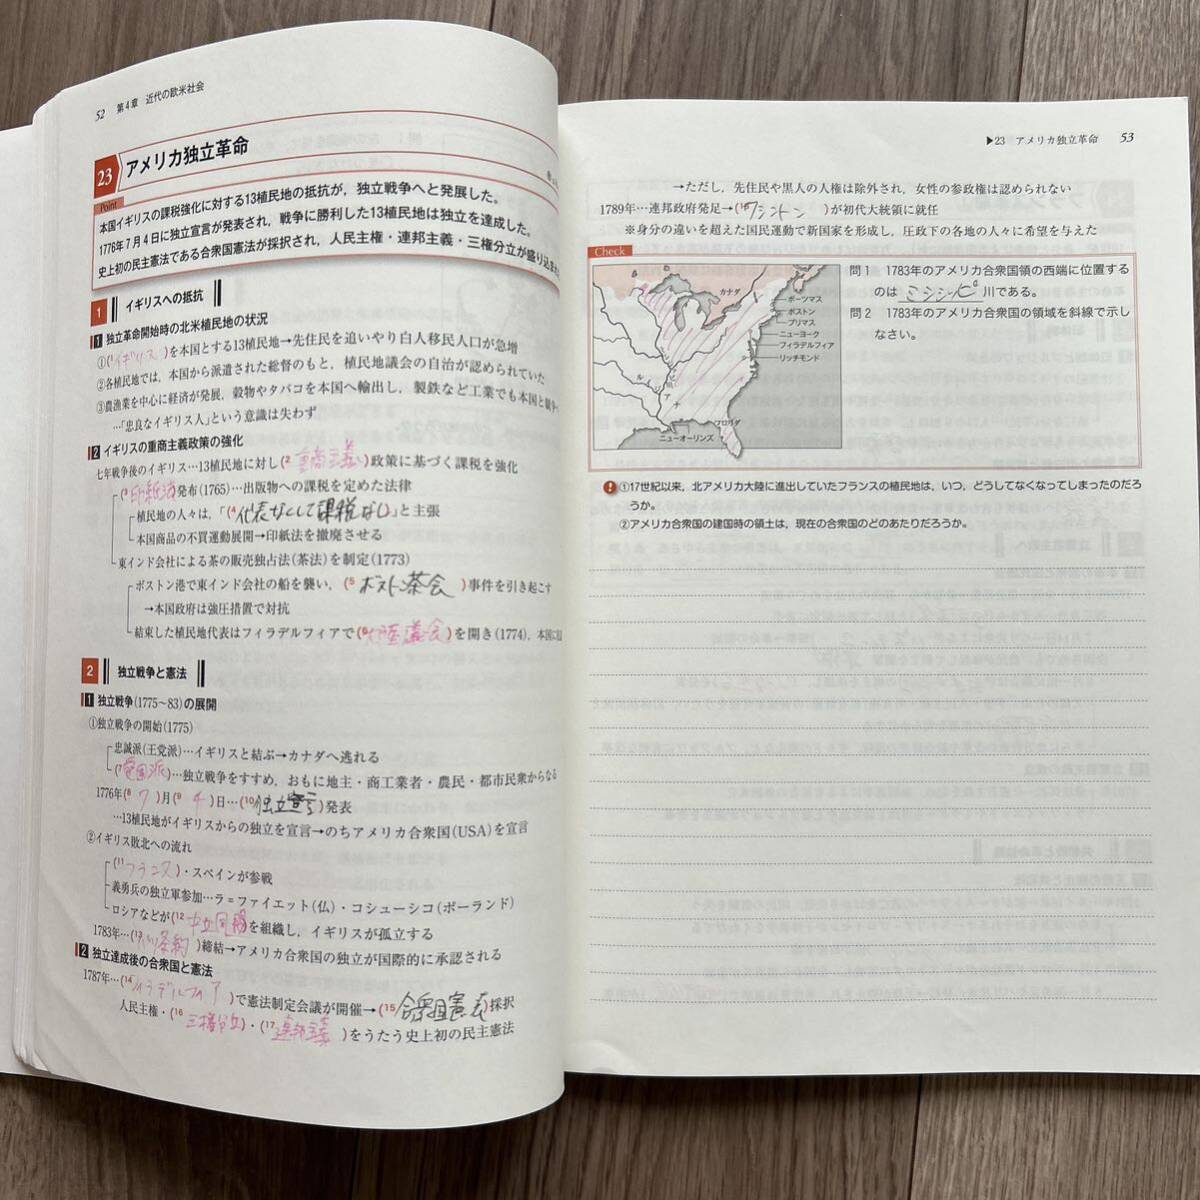 52 第4章 近代の欧米社会
23 アメリカ独立革命
Point
本国イギリスの課税強化に対する13植民地の抵抗が，独立戦争へと発展した。
1776年7月4日に独立宣言が発表され，戦争に勝利した13植民地は独立を達成した。
史上初の民主憲法である合衆国憲法が採択され，人民主権・連邦主義・三権分立が盛り込まれ
1 イギリスへの抵抗
1 独立革命開始時の北米植民地の状況
①(1イギリス)を本国とする13植民地→先住民を追いやり白人移民人口が急増
②各植民地では，本国から派遣された総督のもと，植民地議会の自治が認められていた
③農漁業を中心に経済が発展，穀物やタバコを本国へ輸出し，製鉄など工業でも本国と競争
…「忠良なイギリス人」という意識は失わず
2 イギリスの重商主義政策の強化
七年戦争後のイギリス…13植民地に対し(2重商主義)政策に基づく課税を強化
(3印紙法)発布(1765)…出版物への課税を定めた法律
植民地の人々は，「(4代表なくして課税なし)」と主張
本国商品の不買運動展開→印紙法を撤廃させる
東インド会社による茶の販売独占法(茶法)を制定(1773)
ボストン港で東インド会社の船を襲い，(5ボストン茶会)事件を引き起こす
→本国政府は強圧措置で対抗
結束した植民地代表はフィラデルフィアで(6大陸議会)を開き(1774)，本国に
2 独立戦争と憲法
1 独立戦争(1775～83)の展開
①独立戦争の開始(1775)
忠誠派(王党派)…イギリスと結ぶ→カナダへ逃れる
(7愛国派)…独立戦争をすすめ，おもに地主・商工業者・農民・都市民衆からなる
1776年(8 7)月(9 4)日…(10独立宣言)発表
…13植民地がイギリスからの独立を宣言→のちアメリカ合衆国(USA)を宣言
②イギリス敗北への流れ
(11フランス)・スペインが参戦
義勇兵の独立軍参加…ラ＝ファイエット(仏)・コシューシコ(ポーランド)
ロシアなどが(12中立同盟)を組織し，イギリスが孤立する
1783年…(13パリ条約)締結→アメリカ合衆国の独立が国際的に承認される
2 独立達成後の合衆国と憲法
1787年…(14フィラデルフィア)で憲法制定会議が開催→(15合衆国憲法)採択
人民主権・(16三権分立)・(17連邦主義)をうたう史上初の民主憲法
▶23 アメリカ独立革命 53
→ただし，先住民や黒人の人権は除外され，女性の参政権は認められない
1789年…連邦政府発足→(18ワシントン)が初代大統領に就任
※身分の違いを超えた国民運動で新国家を形成し，圧政下の各地の人々に希望を与えた
Check
カナダ
ポーツマス
ボストン
プリマス
ニューヨーク
フィラデルフィア
リッチモンド
フロリダ
ニューオーリンズ
問1 1783年のアメリカ合衆国領の西端に位置する
のは ミシシッピ 川である。
問2 1783年のアメリカ合衆国の領域を斜線で示し
なさい。
①17世紀以来，北アメリカ大陸に進出していたフランスの植民地は，いつ，どうしてなくなってしまったのだろ
うか。
②アメリカ合衆国の建国時の領土は，現在の合衆国のどのあたりだろうか。